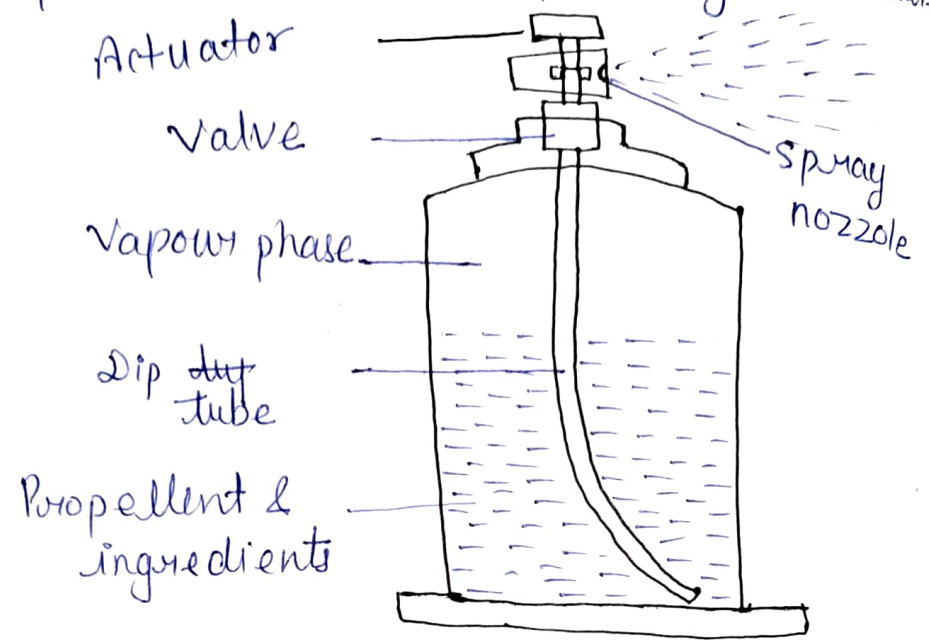 Actuator
Valve
Spray
nozzole
Vapour phase
Dip
tube
Propellent &
ingredients